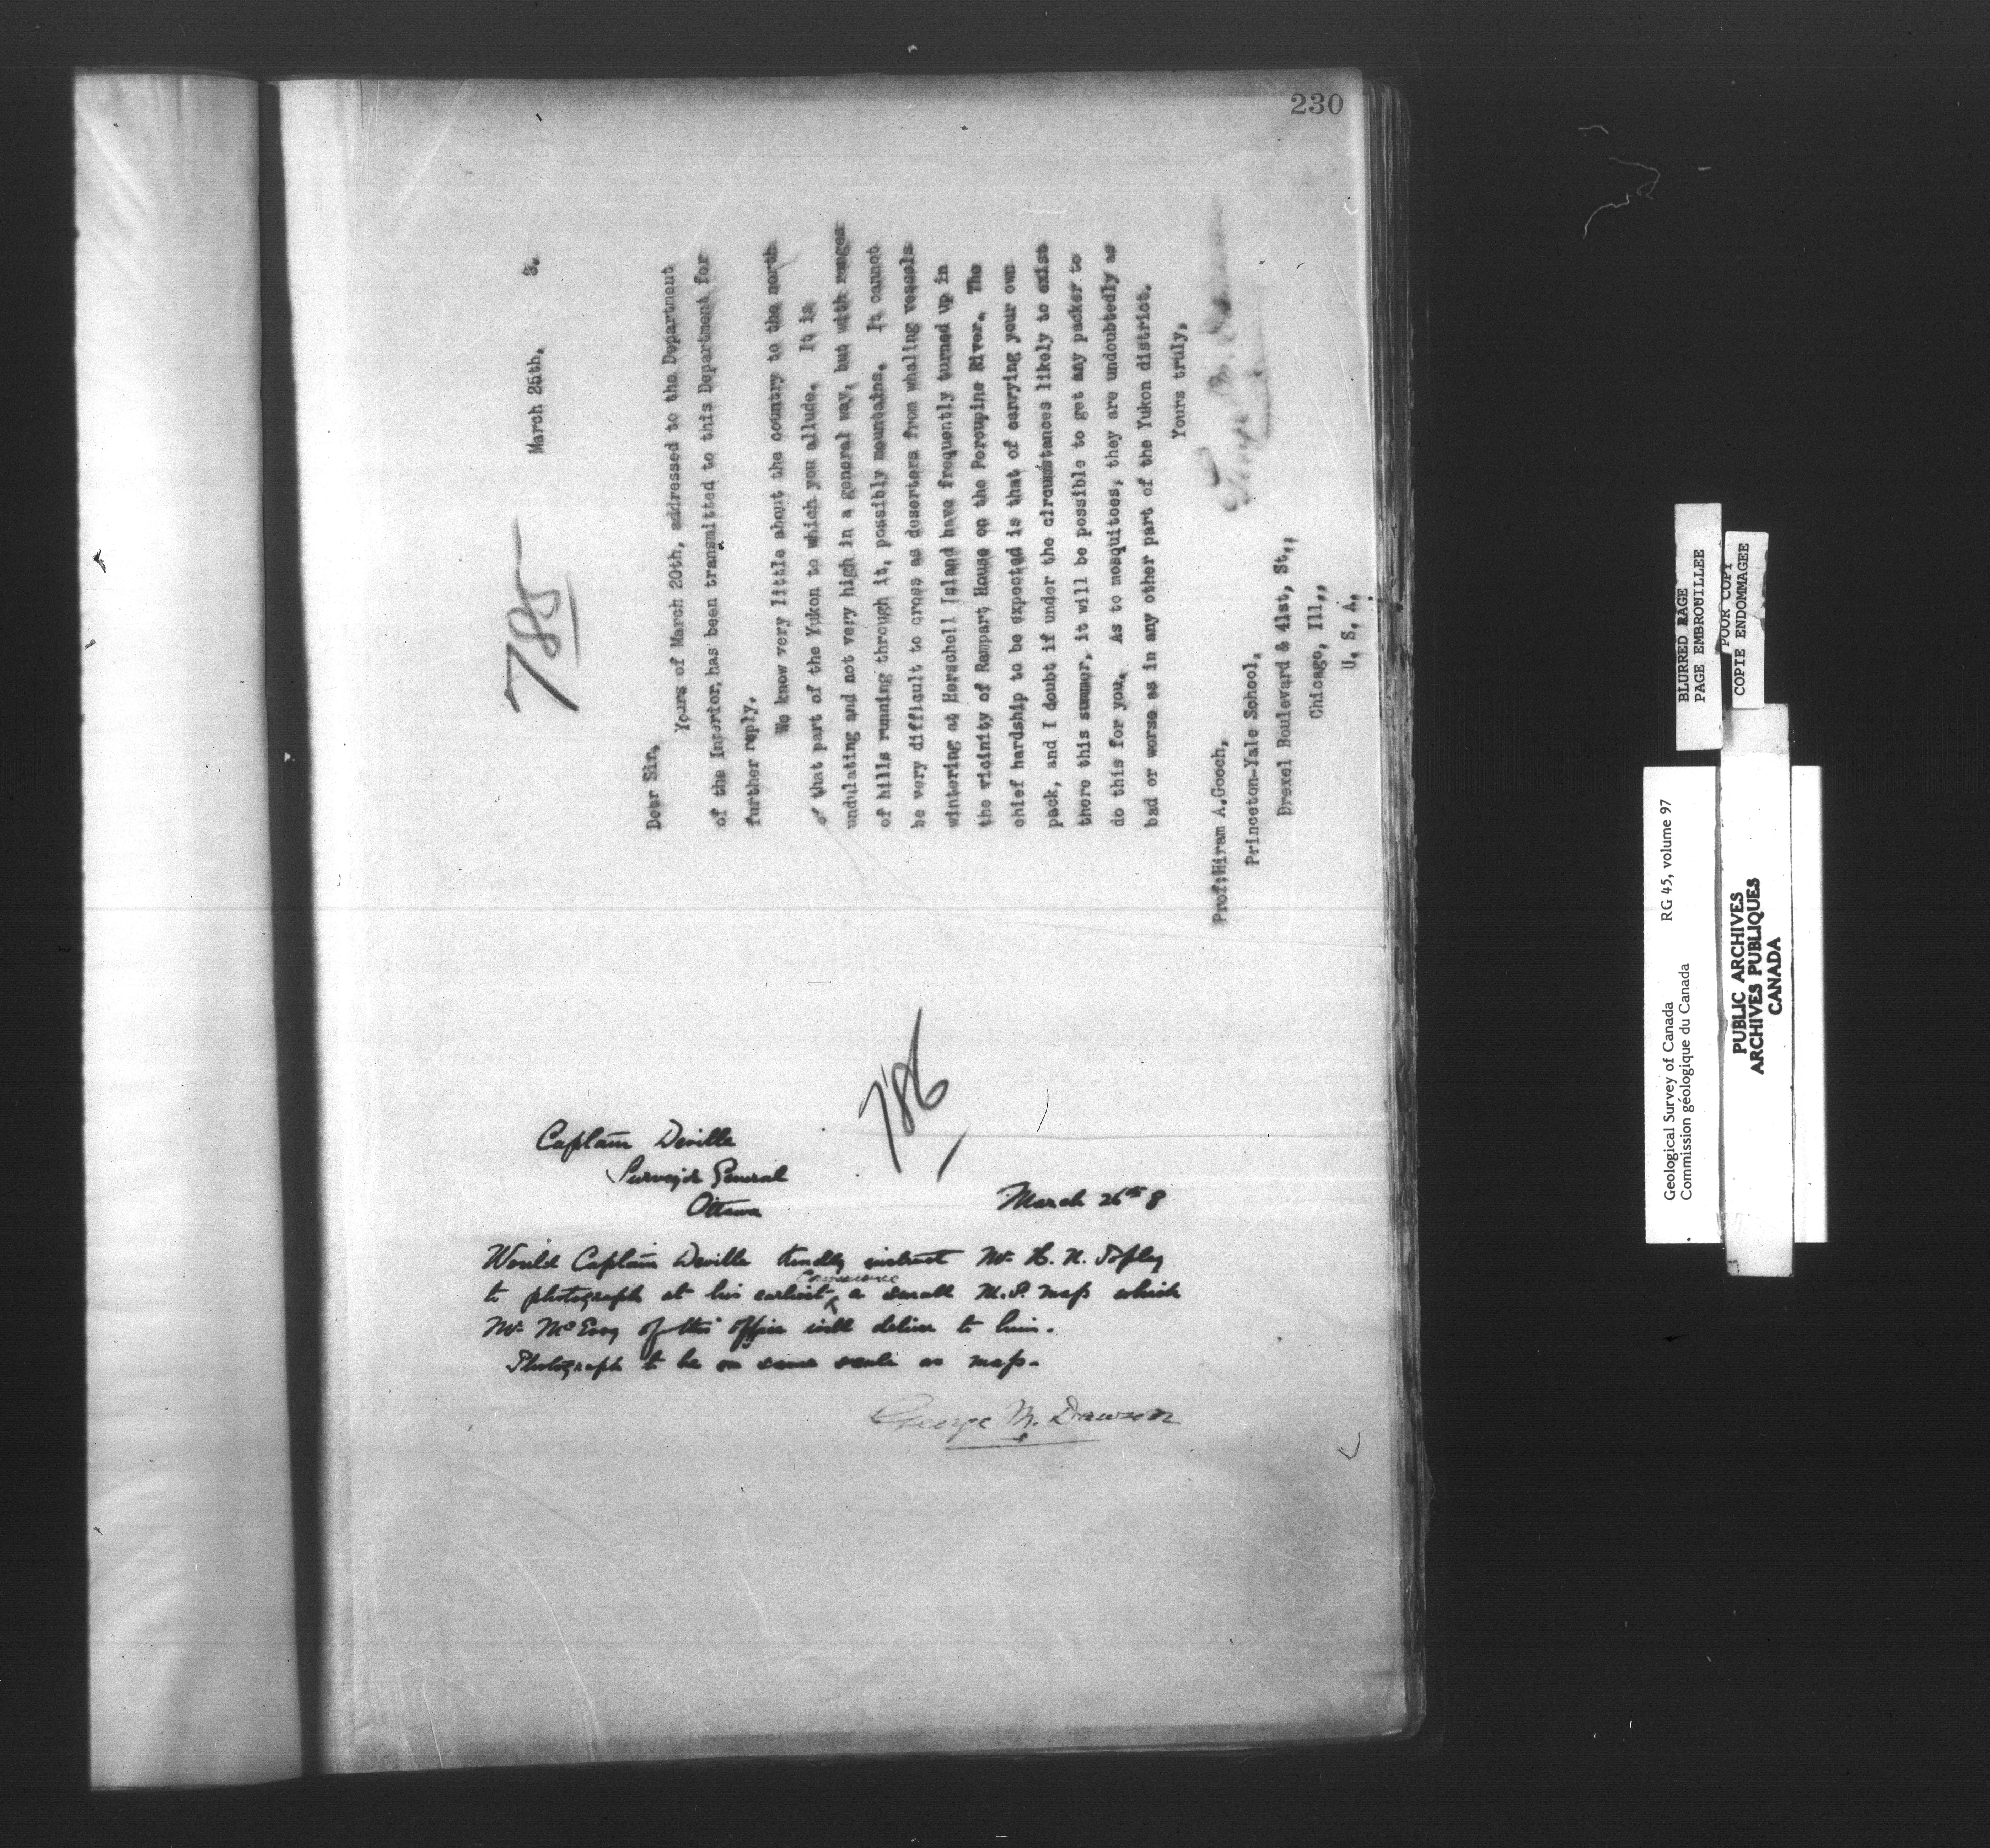 230
785
March 25th, 8.
Dear Sir,
Yours of March 20th, addressed to the Department
of the Interior, has been transmitted to this Department for
further reply.
We know very little about the country to the north
of that part of the Yukon to which you allude. It is
undulating and not very high in a general way, but with ranges
of hills running through it, possibly mountains. It cannot
be very difficult to cross as deserters from whaling vessels
wintering at Herschell Island have frequently turned up in
the vicinity of Rampart House on the Porcupine River. The
chief hardship to be expected is that of carrying your own
pack, and I doubt if under the circumstances likely to exist
there this summer, it will be possible to get any packer to
do this for you. As to mosquitoes, they are undoubtedly as
bad or worse as in any other part of the Yukon district.
Yours truly,
George M. Dawson
Prof: Hiram A. Gooch,
Princeton-Yale School,
Drexel Boulevard & 41st, St.,
Chicago, Ill.,
U. S. A.
786
Captain Deville
Surveyor General
Ottawa
March 26th 8
Would Captain Deville kindly instruct Mr. H. N. Topley
to photograph at his earliest convenience a small M.S. map which
Mr. McEvoy of this office will deliver to him.
Photograph to be on same scale as map.
George M. Dawson
BLURRED PAGE
PAGE EMBROUILLEE
POOR COPY
COPIE ENDOMMAGEE
Geological Survey of Canada RG 45, volume 97
Commission géologique du Canada
PUBLIC ARCHIVES
ARCHIVES PUBLIQUES
CANADA